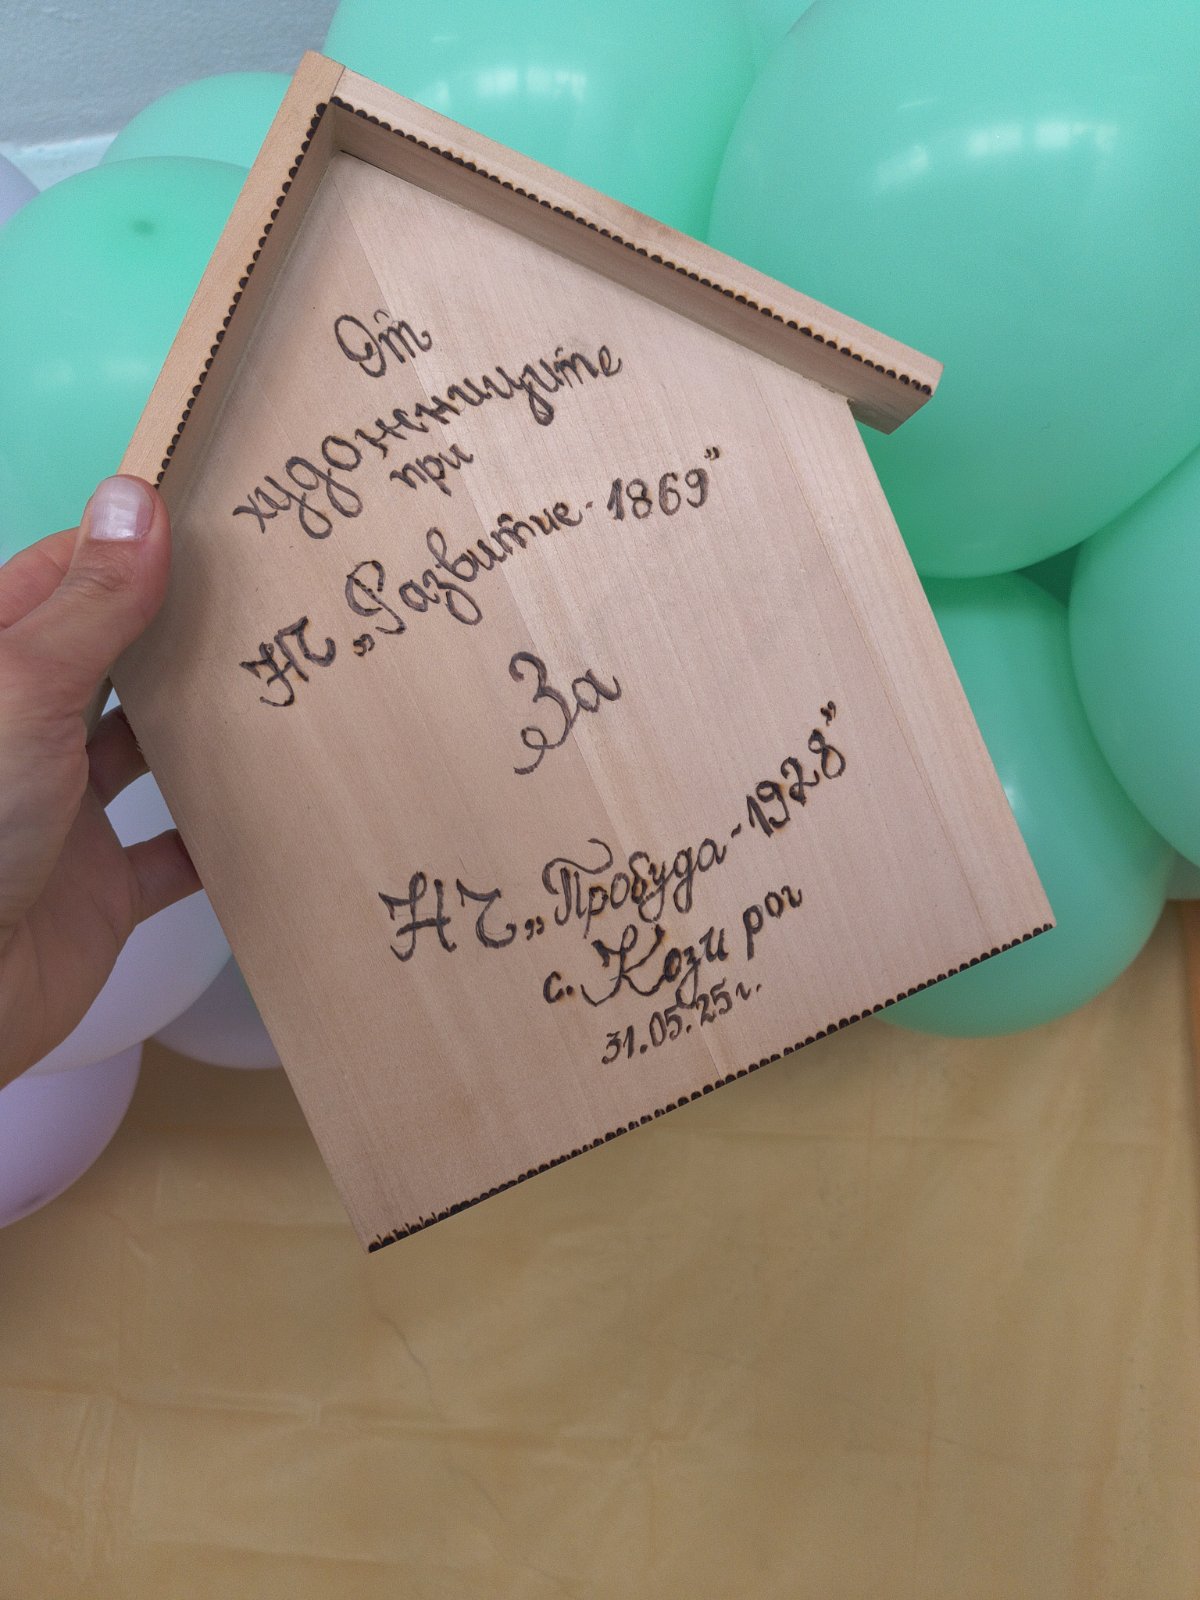 От
художниците
при
НЧ „Развитие-1869”
За
НЧ „Пробуда-1928”
с. Кози рог
31.05.25г.